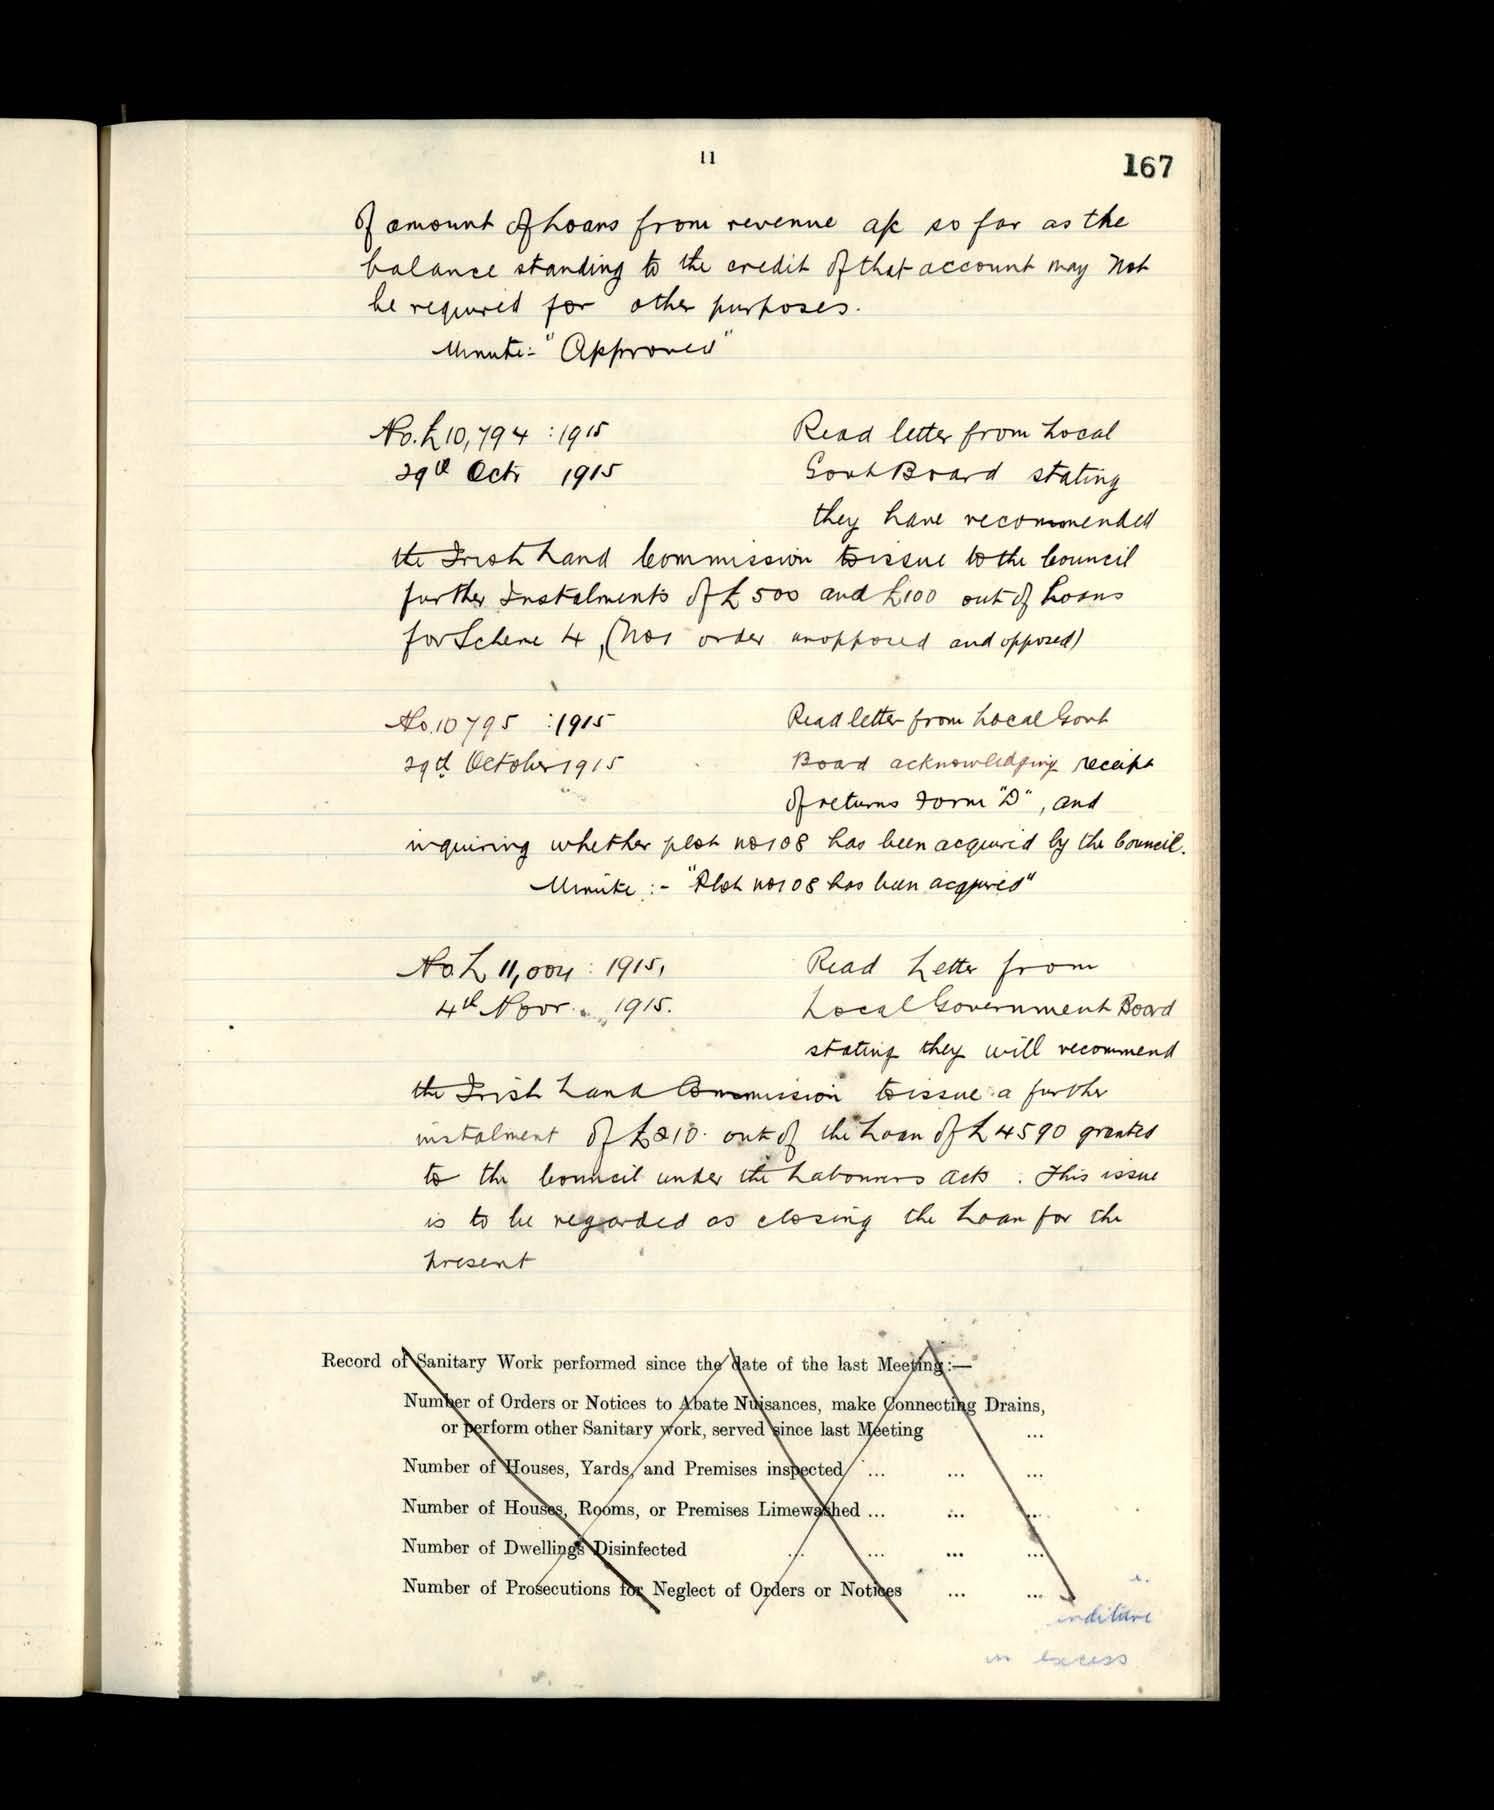 11
167
of amount of Loans from revenue a/c so far as the
balance standing to the credit of that account may not
be required for other purposes.
Minute:- "Approved"
No. L 10,794 : 1915
Read letter from Local
29th Octr 1915
Govt Board stating
they have recommended
the Irish Land Commission to issue to the Council
further Instalments of £500 and £100 out of Loans
for Scheme 4, (No 1 order unopposed and opposed)
No. 10795 : 1915
Read letter from Local Govt
29th October 1915
Board acknowledging receipt
of returns Form "D", and
inquiring whether plot no 108 has been acquired by the Council.
Minute :- "Plot no 108 has been acquired"
No. L 11,004 : 1915,
Read Letter from
4th Novr. 1915.
Local Government Board
stating they will recommend
the Irish Land Commission to issue a further
instalment of £210. out of the Loan of £4590 granted
to the Council under the Labourers Acts. This issue
is to be regarded as closing the Loan for the
present
Record of Sanitary Work performed since the date of the last Meeting:—
Number of Orders or Notices to Abate Nuisances, make Connecting Drains,
or perform other Sanitary work, served since last Meeting ...
Number of Houses, Yards, and Premises inspected ... ... ...
Number of Houses, Rooms, or Premises Limewashed ... ... ...
Number of Dwellings Disinfected ... ... ... ...
Number of Prosecutions for Neglect of Orders or Notices ... ...
enditure
in excess